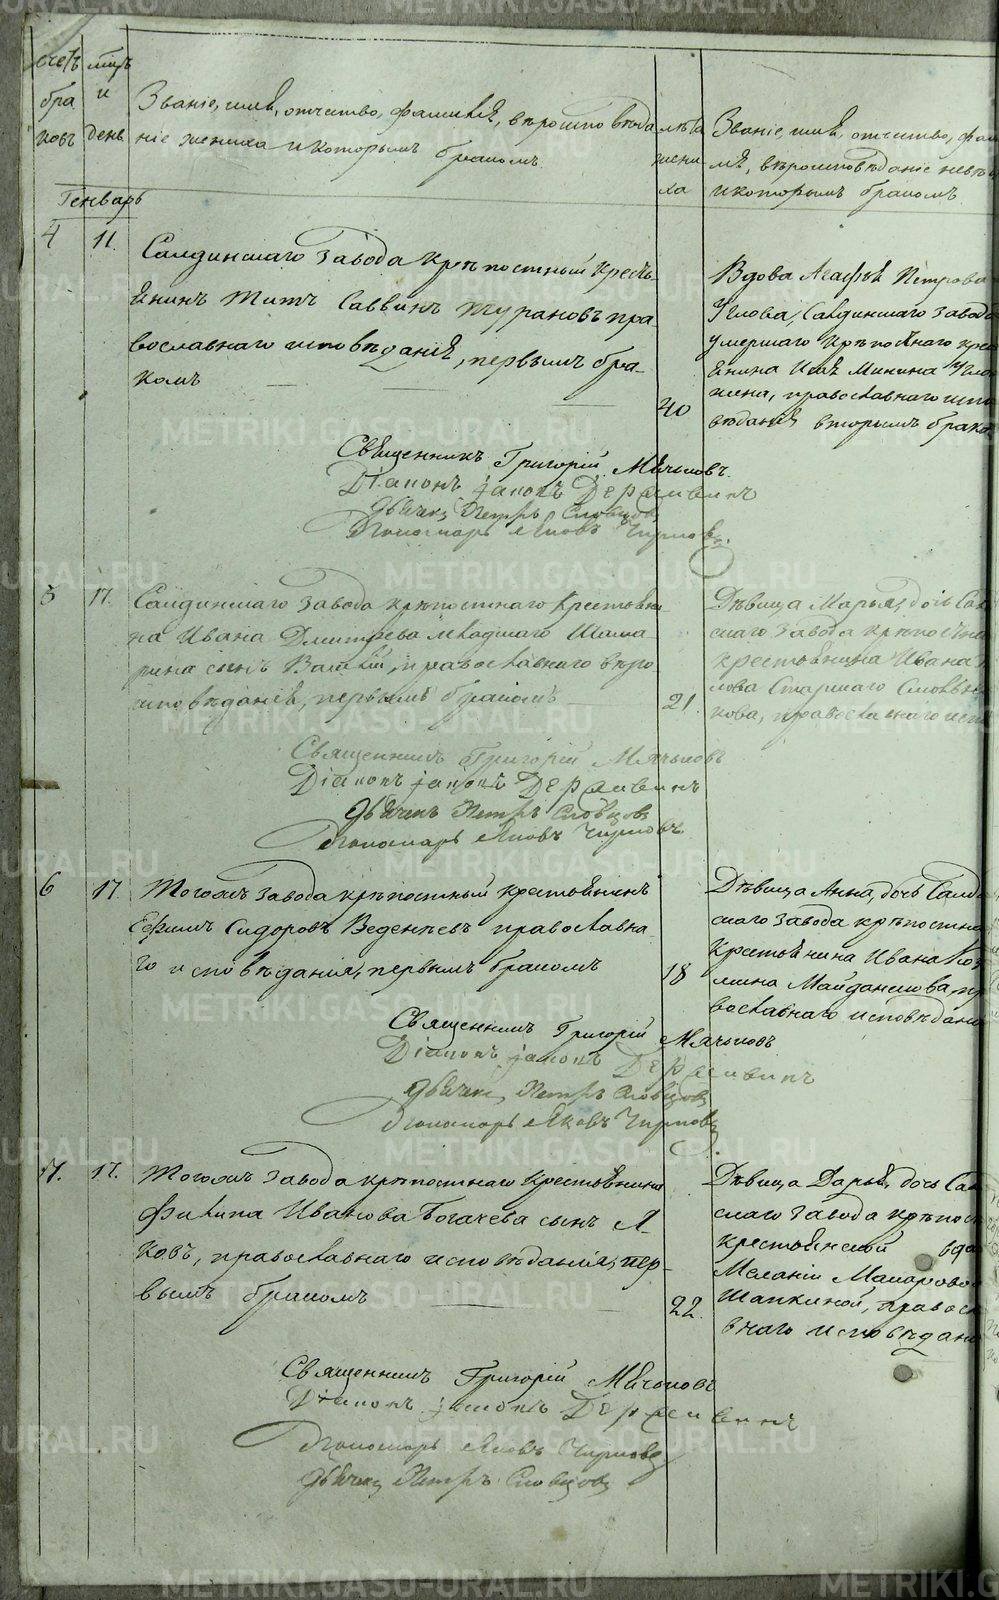 METRIKI.GASO-URAL.RU
счетъ бра ковъ
мцъ и день
Званіе, имя, отчество, фамилія, вѣроисповѣда
ніе жениха и которымъ бракомъ
лѣта жени ха
Званіе, имя, отчество, фами
лія, вѣроисповѣданіе невѣс
и которымъ бракомъ
Генварь
4 11.
Салдинскаго завода крѣпостный кресть
янинъ Титъ Саввинъ Турановъ пра-
вославнаго исповѣданія, первымъ бра-
комъ
40
Вдова Агафья Петрова
Углова, Салдинскаго завода
умершаго крѣпостнаго крес
янина Минина
жена, православнаго испо
вѣданія вторымъ брако
Священникъ Григорій Мячковъ.
Діаконъ Іаковъ
Дьячекъ Петръ Словцовъ
Пономарь Яковъ Чирковъ.
5 17.
Салдинскаго завода крѣпостнаго крестьяни
на Ивана Дмитрева младшаго Шама
рина сынъ Василій, православнаго вѣро
исповѣданія, первымъ бракомъ
21.
Дѣвица Марья, дочь Сал
скаго завода крѣпостна
крестьянина Ивана
лова Старшаго
кова, православнаго испо
Священникъ Григорій Мячковъ
Діаконъ Іаковъ
Дьячекъ Петръ Словцовъ
Пономарь Яковъ Чирковъ
6 17.
Тогожъ завода крѣпостный крестьянинъ
Ефимъ Сидоровъ Веденѣевъ православна
го исповѣданія, первымъ бракомъ
18
Дѣвица Анна, дочь Салди
скаго завода крѣпостна
крестьянина Ивана Коз
мина Майданикова, пр
вославнаго исповѣдані
Священникъ Григорій Мячковъ
Діаконъ Іаковъ
Дьячекъ Петръ Словцовъ
Пономарь Яковъ Чирковъ.
7. 17.
Тогожъ завода крѣпостнаго крестьянина
Филипа Иванова Богачева сынъ Я
ковъ, православнаго исповѣданія, пер-
вымъ бракомъ
22.
Дѣвица Дарья, дочь Сал
скаго завода крѣпост
крестьянской вдо
Меланіи Макаровой
Шапкиной, правосл
внаго исповѣдані
Священникъ Григорій Мячковъ
Діаконъ Іаковъ
Пономарь Яковъ Чирковъ
Дьячекъ Петръ Словцовъ